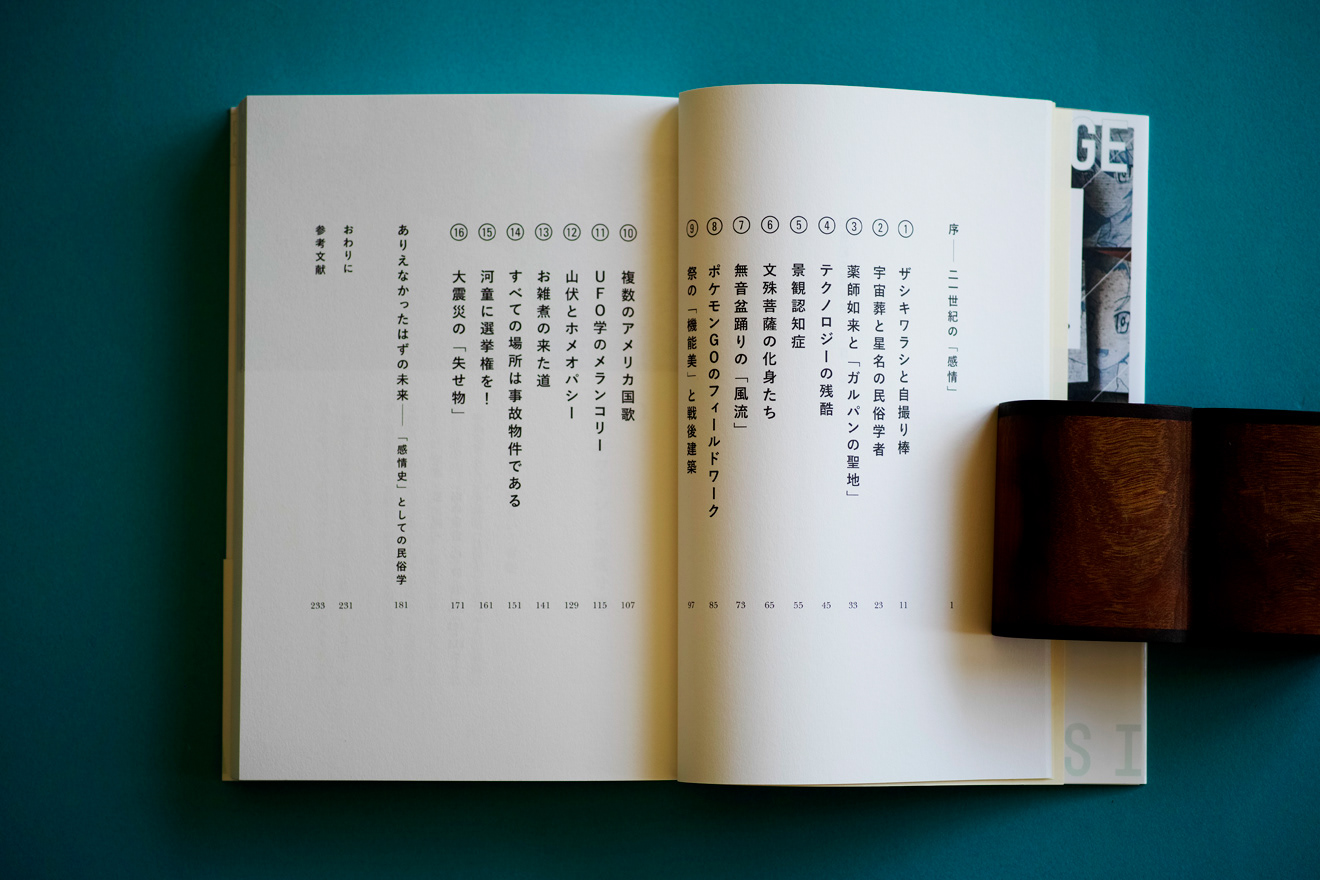 序──二一世紀の「感情」 1
① ザシキワラシと自撮り棒 11
② 宇宙葬と星名の民俗学者 23
③ 薬師如来と「ガルパンの聖地」 33
④ テクノロジーの残酷 45
⑤ 景観認知症 55
⑥ 文殊菩薩の化身たち 65
⑦ 無音盆踊りの「風流」 73
⑧ ポケモンGOのフィールドワーク 85
⑨ 祭の「機能美」と戦後建築 97
⑩ 複数のアメリカ国歌 107
⑪ UFO学のメランコリー 115
⑫ 山伏とホメオパシー 129
⑬ お雑煮の来た道 141
⑭ すべての場所は事故物件である 151
⑮ 河童に選挙権を! 161
⑯ 大震災の「失せ物」 171
ありえなかったはずの未来──「感情史」としての民俗学 181
おわりに 231
参考文献 233
GE
SI